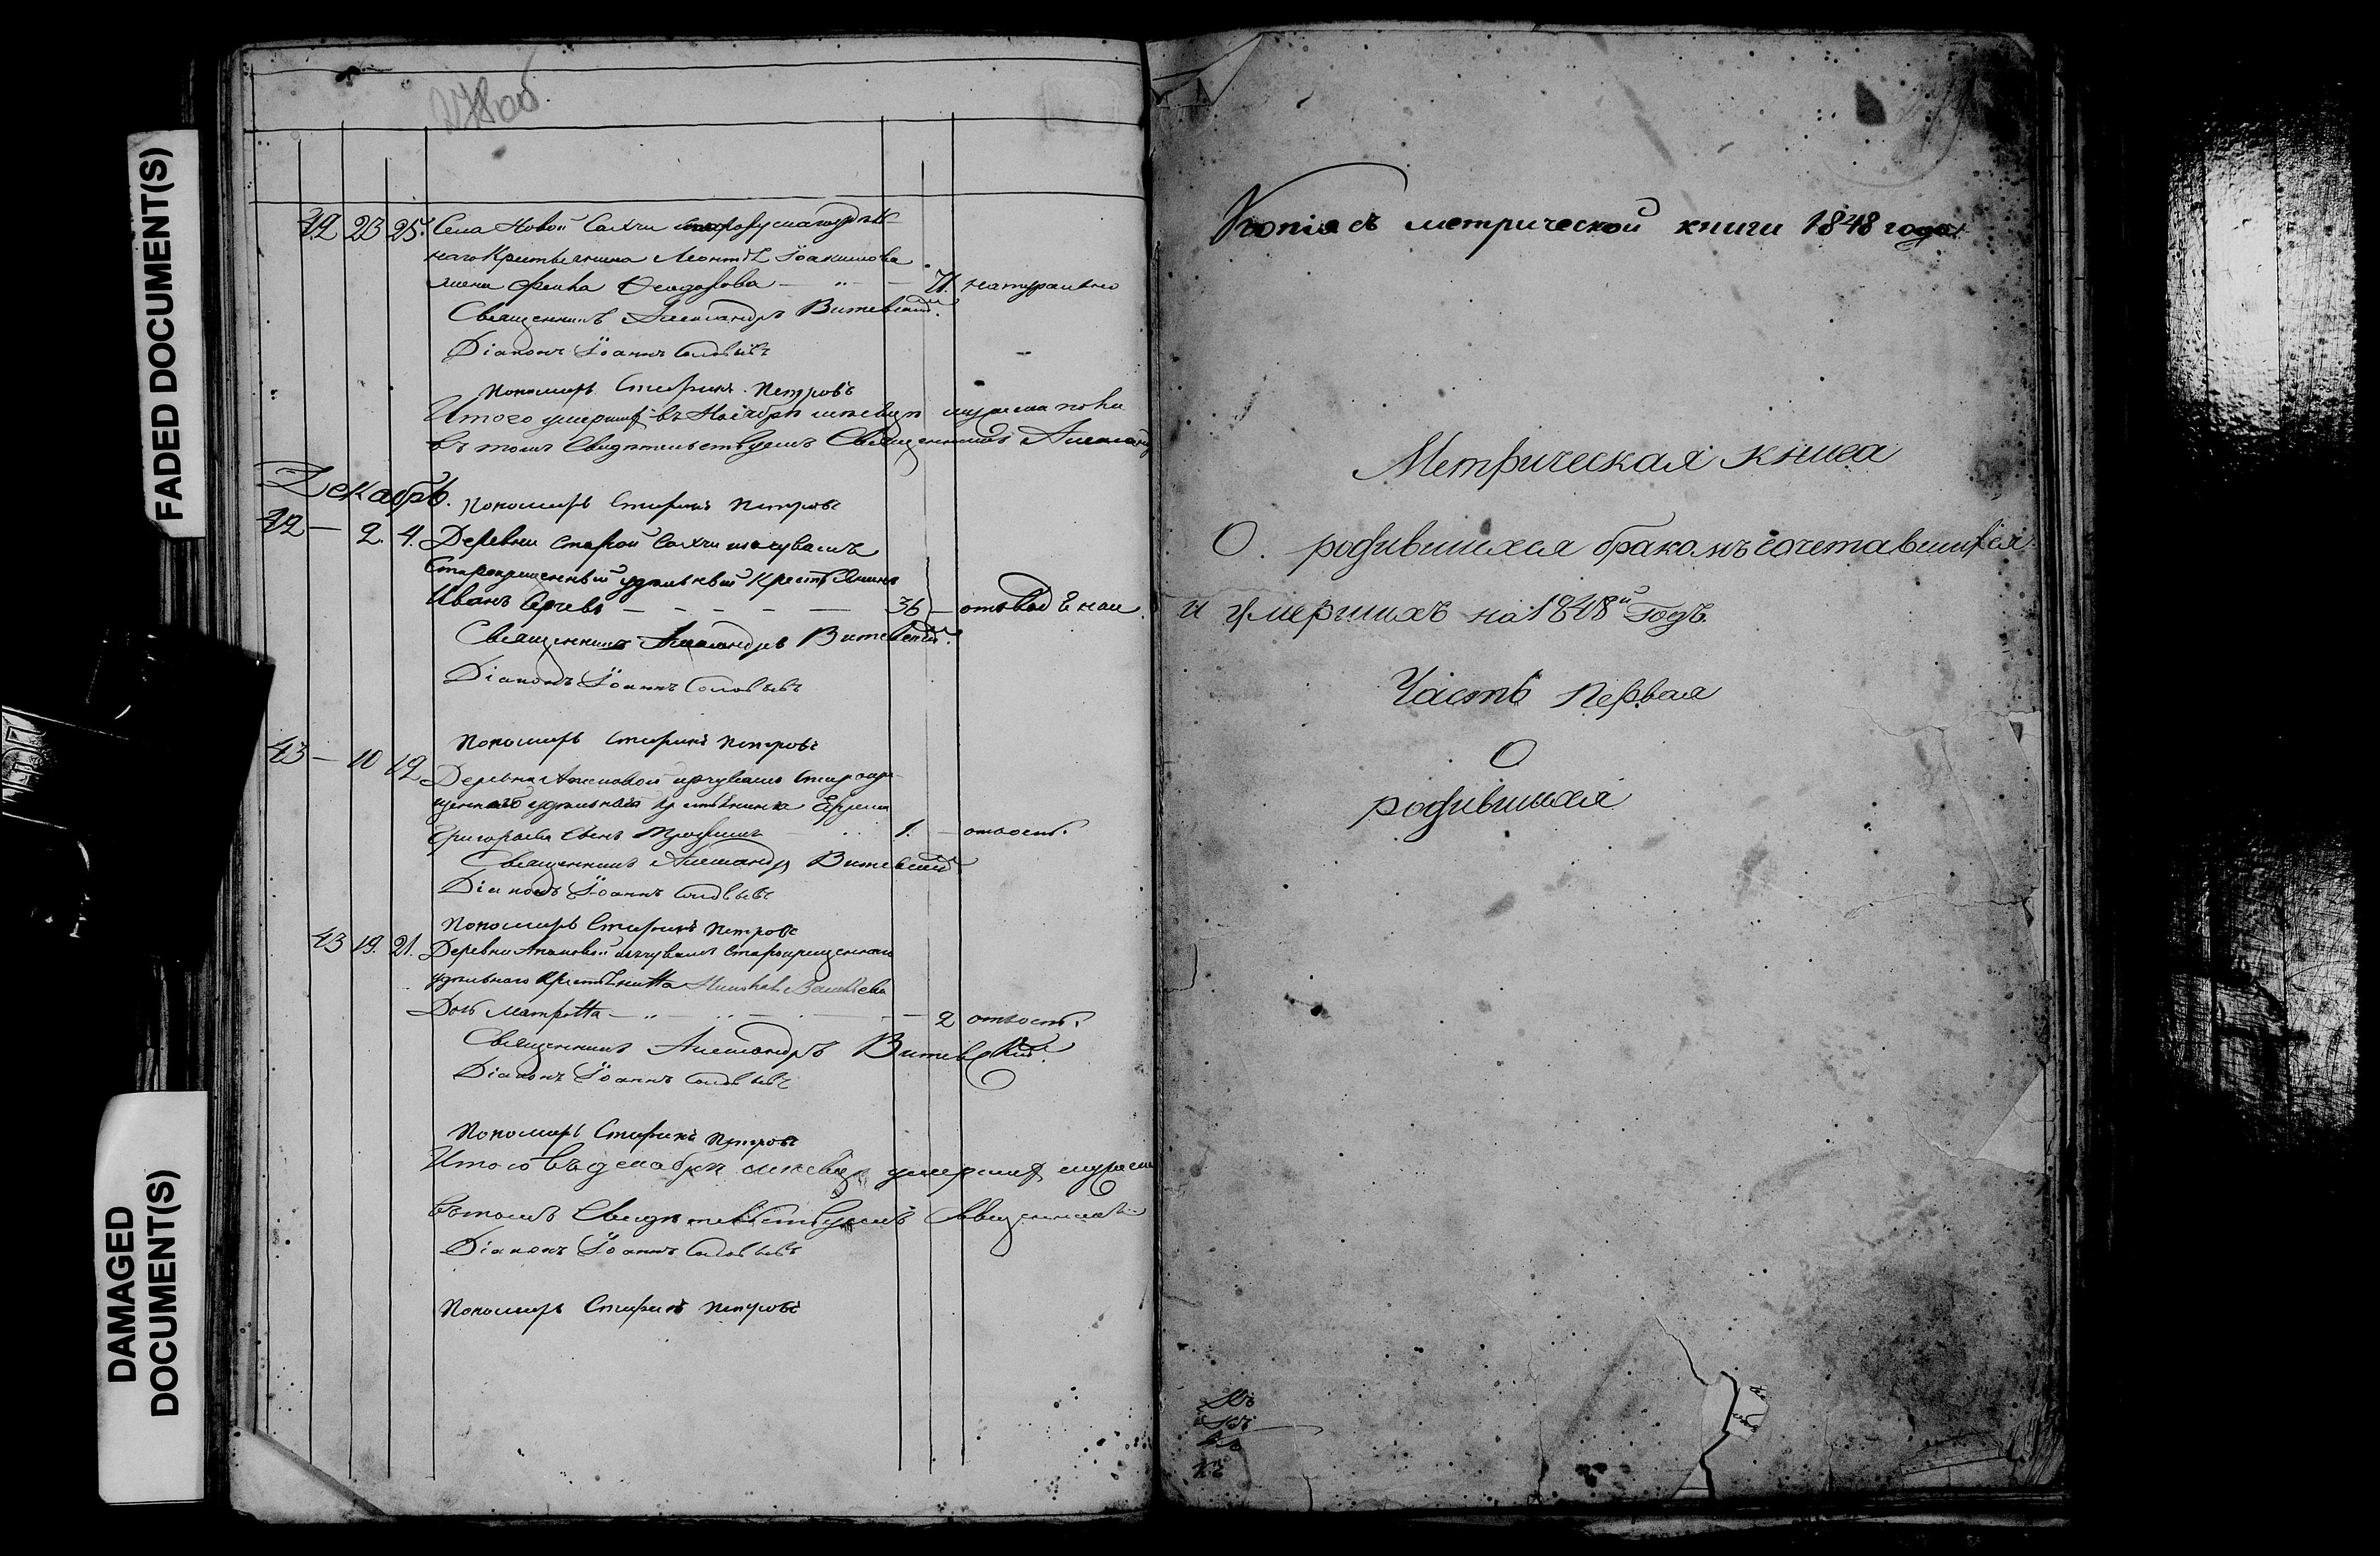 FADED DOCUMENT(S)
DAMAGED
DOCUMENT(S)
278об
42 23 25. Села Новой Сахчи
наго Крестьянина Леонтія Іоакимова
жена Ѳеодорова — 71 натурально
Священникъ Александръ Витевскій.
Діаконъ Іоаннъ Соловьевъ
Пономарь Стефанъ Петровъ
Итого умершихъ въ Ноябрѣ мѣсяцѣ мужеска пола
Въ томъ Свидѣтельствуемъ Священникъ Александръ
Декабрь.
Пономарь Стефанъ Петровъ
42 — 2. 4. Деревни Старой Сахчи изъ чувашъ
Старокрещенный удѣльный Крестьянинъ
Иванъ Сергевъ — — — — — 36 —
Священникъ Александръ Витевскій.
Діаконъ Іоаннъ Соловьевъ
Пономарь Стефанъ Петровъ
43 — 10 12 Деревни изъ чувашъ Старокре-
щеннаго удѣльнаго крестьянина Ефрема
Григорьева Сынъ Трофимъ 1. — отъ оспы.
Священникъ Александръ Витевскій
Діаконъ Іоаннъ Соловьевъ
Пономарь Стефанъ Петровъ
43 19. 21. Деревни изъ чувашъ Старокрещеннаго
удѣльнаго Крестьянина
Дочь Матрона — — — — 2 отъ оспы.
Священникъ Александръ Витевскій
Діаконъ Іоаннъ Соловьевъ
Пономарь Стефанъ Петровъ
Итого въ декабрѣ мѣсяцѣ умершихъ мужеска
Въ томъ Свидѣтельствуемъ Священникъ
Діаконъ Іоаннъ Соловьевъ
Пономарь Стефанъ Петровъ
Копія съ метрической книги 1848 года
Метрическая книга
О родившихся бракомъ сочетавшихся
и умершихъ на 1848й Годъ.
Часть Первая
О
родившихся